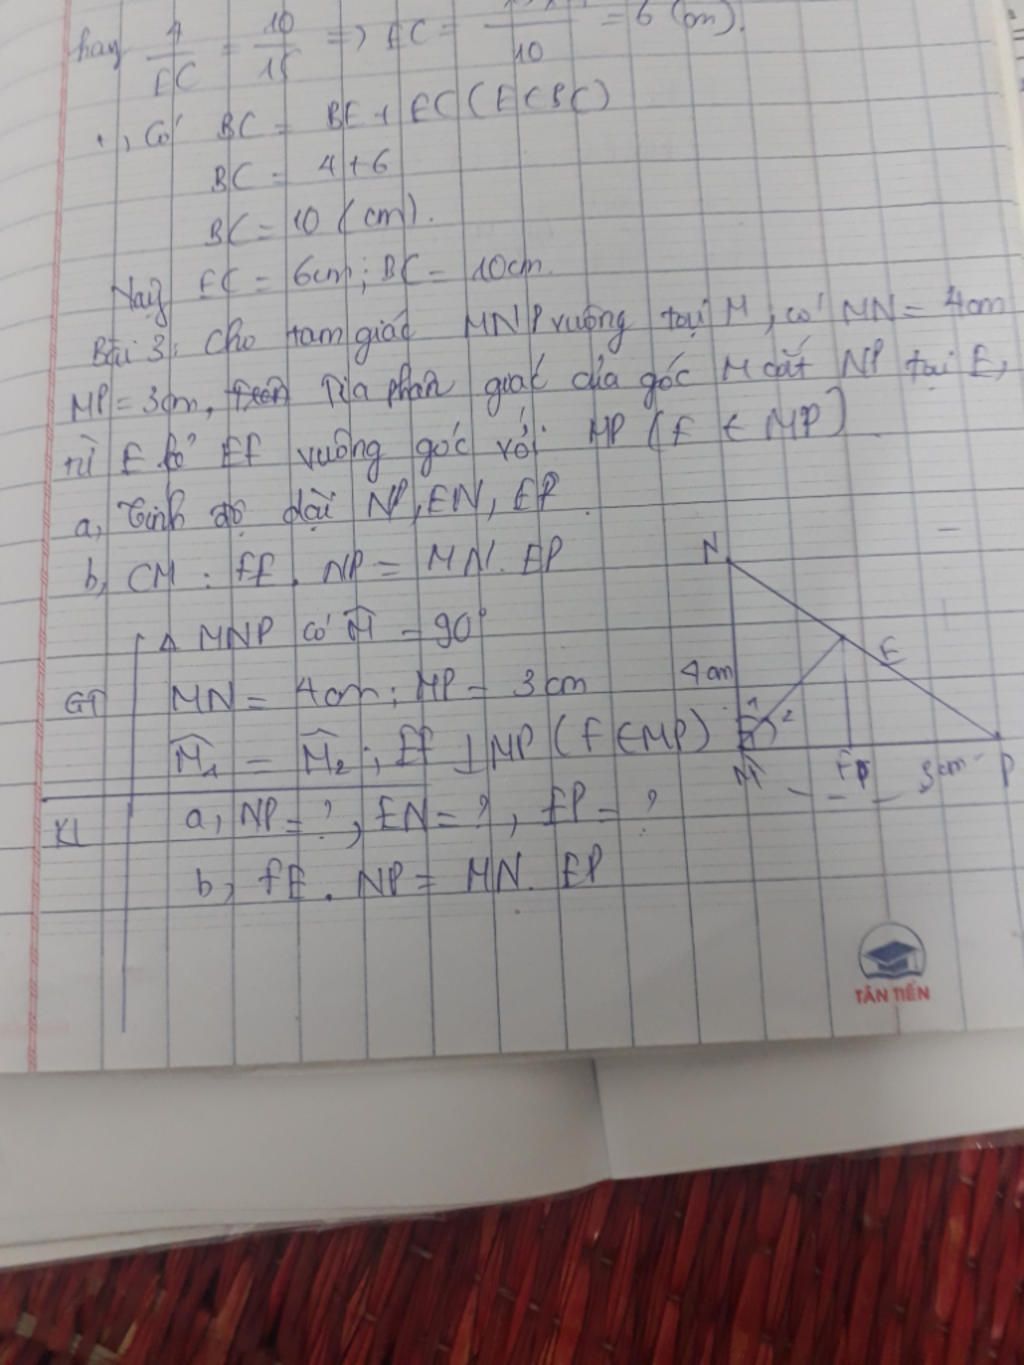 hay 4/EC = 10/15 => EC = /10 = 6 (cm).
+, Có BC = BE + EC (E ∈ BC)
BC = 4+6
BC = 10 (cm).
Vậy EC = 6cm; BC = 10cm.
Bài 3: Cho tam giác MNP vuông tại M, có MN = 4cm
MP = 3cm, Tia phân giác của góc M cắt NP tại E,
từ E kẻ EF vuông góc với MP (F ∈ MP)
a, Tính độ dài NP, EN, EP.
b, CM: FE . NP = MN. EP
N
Δ MNP có M̂ = 90°
E
GT
MN = 4cm; MP = 3cm
4cm
M̂₁ = M̂₂; EF ⊥ MP (F ∈ MP)
1
2
M
F
3cm
P
KL
a, NP = ?, EN = ?, EP = ?
b, FE . NP = MN. EP
TÂN TIẾN